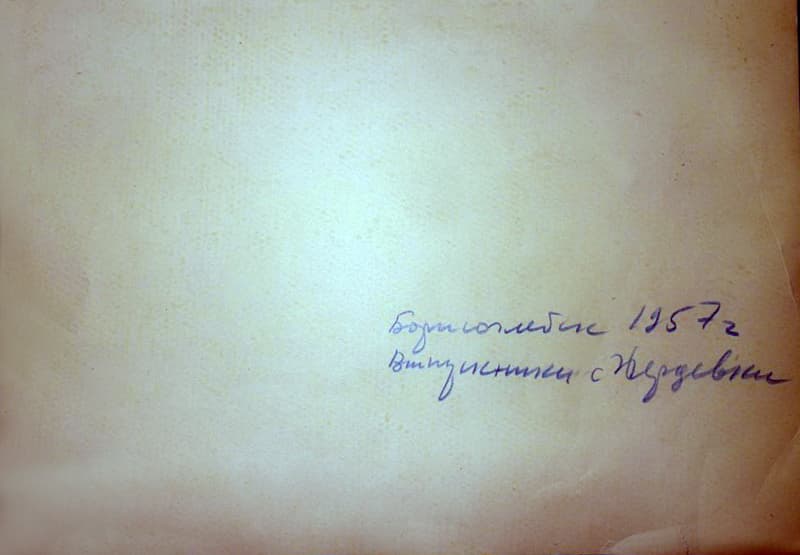 Борисоглебск 1957г
Выпускники с Жердевки